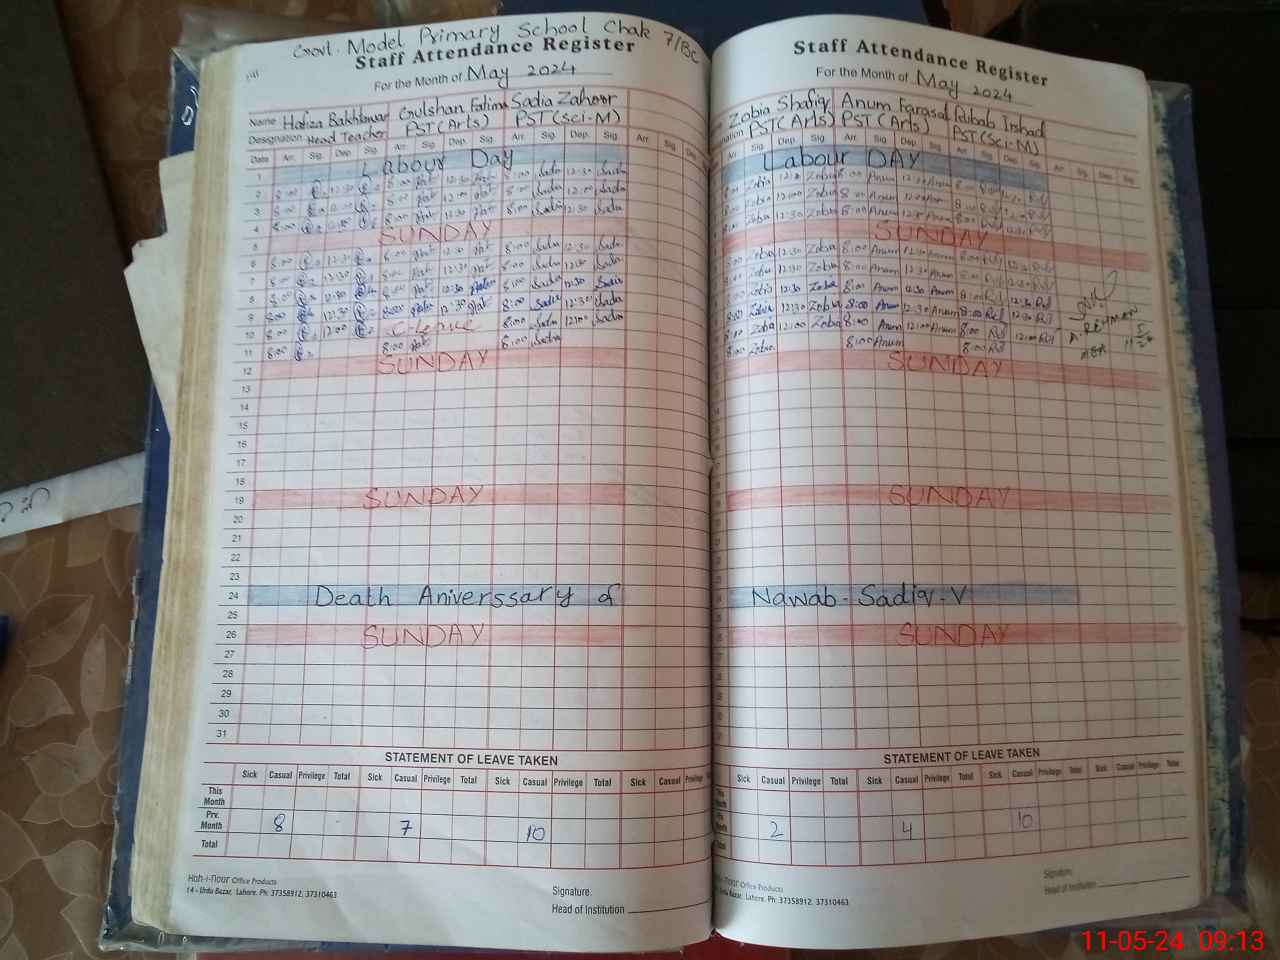 Govt. Model Primary School Chak 7/BC
Staff Attendance Register
For the Month of May 2024
Name Hafiza Bakhtawar Gulshan Fatima Sadia Zahoor
Designation Head Teacher PST(Arts) PST(Sci-M)
Date Arr. Sig. Dep. Sig. Arr. Sig. Dep. Sig. Arr. Sig. Dep. Sig. Arr. Sig. Dep.
1 Labour Day
2 8:00 12:30 8:00 12:30 8:00 Sadia 12:30 Sadia
3 8:00 12:00 8:00 12:00 8:00 Sadia 12:00 Sadia
4 8:00 8:00 12:30 8:00 Sadia 12:30 Sadia
5 SUNDAY
6 8:00 12:30 8:00 12:30 8:00 Sadia 12:30 Sadia
7 8:00 12:30 8:00 12:30 8:00 Sadia 12:30 Sadia
8 8:00 12:30 8:00 12:30 8:00 Sadia 12:30 Sadia
9 8:00 12:30 8:00 12:30 8:00 Sadia 12:30 Sadia
10 8:00 12:00 C-leave 8:00 Sadia 12:00 Sadia
11 8:00 8:00 8:00 Sadia
12 SUNDAY
13
14
15
16
17
18
19 SUNDAY
20
21
22
23
24 Death Aniverssary of
25
26 SUNDAY
27
28
29
30
31
STATEMENT OF LEAVE TAKEN
Sick Casual Privilege Total Sick Casual Privilege Total Sick Casual Privilege Total Sick Casual Privilege
This Month
Prv. Month 8 7 10
Total
Office Products
14 - Urdu Bazar, Lahore. Ph: 37358912, 37310463
Signature.
Head of Institution
Staff Attendance Register
For the Month of May 2024
Zobia Shafiq Anum Farasat Rubab Irshad
PST(Arts) PST(Arts) PST(Sci-M)
Arr. Sig. Dep. Sig. Arr. Sig. Dep. Sig. Arr. Sig. Dep. Sig. Arr. Sig. Dep. Sig.
Labour DAY
8:00 Zobia 12:30 Zobia 8:00 Anum 12:30 Anum 8:00
8:00 Zobia 12:00 Zobia 8:00 Anum 12:00 Anum 8:00
8:00 Zobia 12:30 Zobia 8:00 Anum 12:30 Anum 8:00
SUNDAY
8:00 Zobia 12:30 Zobia 8:00 Anum 12:30 Anum 8:00 12:30
8:00 Zobia 12:30 Zobia 8:00 Anum 12:30 Anum 8:00 12:30
8:00 Zobia 12:30 Zobia 8:00 Anum 12:30 Anum 8:00 12:30
8:00 Zobia 12:30 Zobia 8:00 Anum 12:30 Anum 8:00 12:30
8:00 Zobia 12:00 Zobia 8:00 Anum 12:00 Anum 8:00 12:00
8:00 Zobia 8:00 Anum 8:00
A. REHMAN
SUNDAY
SUNDAY
Nawab-Sadiq-V
SUNDAY
STATEMENT OF LEAVE TAKEN
Sick Casual Privilege Total Sick Casual Privilege Total Sick Casual Privilege Total Sick Casual Privilege Total
2 4 10
Office Products
Urdu Bazar, Lahore. Ph: 37358912, 37310463
Signature.
Head of Institution
11-05-24 09:13